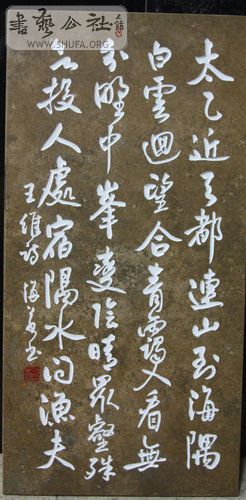 書藝公社
WWW.SHUFA.ORG
太乙近天都連山到海隅
白雲迴望合青靄入看無
分野中峯變陰晴眾壑殊
欲投人處宿隔水问漁夫
王維詩 海书